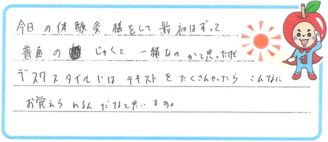 今日の体験受講をして最初はずっと
普通のじゅくと一緒なのかと思ったけど
デスクスタイルではテキストをたくさんやったらこんなに
お覚えられるんだなと思います。